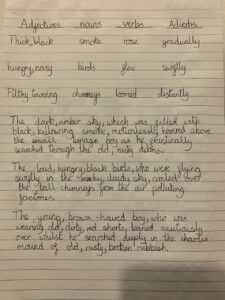 Adjectives nouns verbs Adverbs
Thick, black smoke rose gradually
hungry, noisy birds flew swiftly
Filthy towering chimneys loomed distantly
The dark, amber sky, which was filled with
black, billowing smoke, hovered above
the small boy as he frantically
searched through the old, rusty debris.
The loud, hungry, black birds, who were flying
swiftly in the cloudy sky, circled over
the tall chimneys from the air polluting
factories.
The young, brown haired boy, who was
wearing old, dirty, red shorts, leaned cautiously
over whilst he searched deeply in the chaotic
mound of old, rusty, broken rubbish.